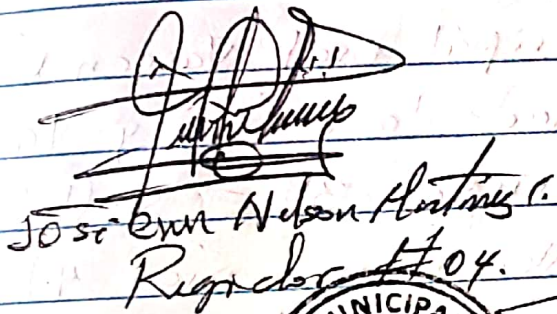 José Ervin Nelson Martínez C.
Regidor # 04.
MUNICIPA